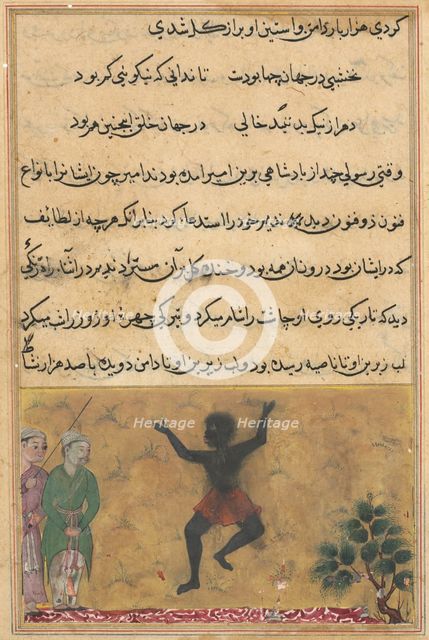 کردی هزار بار دامن و آستین او پر از گل شدی
نخشبی در جهان چها بودست
تا ندانی که نیکویی کم بود
دهر از نیک و بد نیند خالی
در جهان خلق اینچنین هم بود
وقتی رسولی چند از پادشاهی برین امیر آمده بودند امیر چون ایشانرا بانواع
فنون ذوفنون دید
خود را استدعا کرد بنابر آنکه هرچه از لطایف
که در ایشان بود در و نان همه بود و خنده گل بر آن مستزاد
زنگی
دید که تاریکی روی او چاشت را شام میکرد و تیرگی چهره او روز را شب میکرد
لب زبرین او تا ناصیه رسیده بود و لب زیرین او تا دامن دویده با صد هزار نشاط
Heritage
Images
Heritage
Images